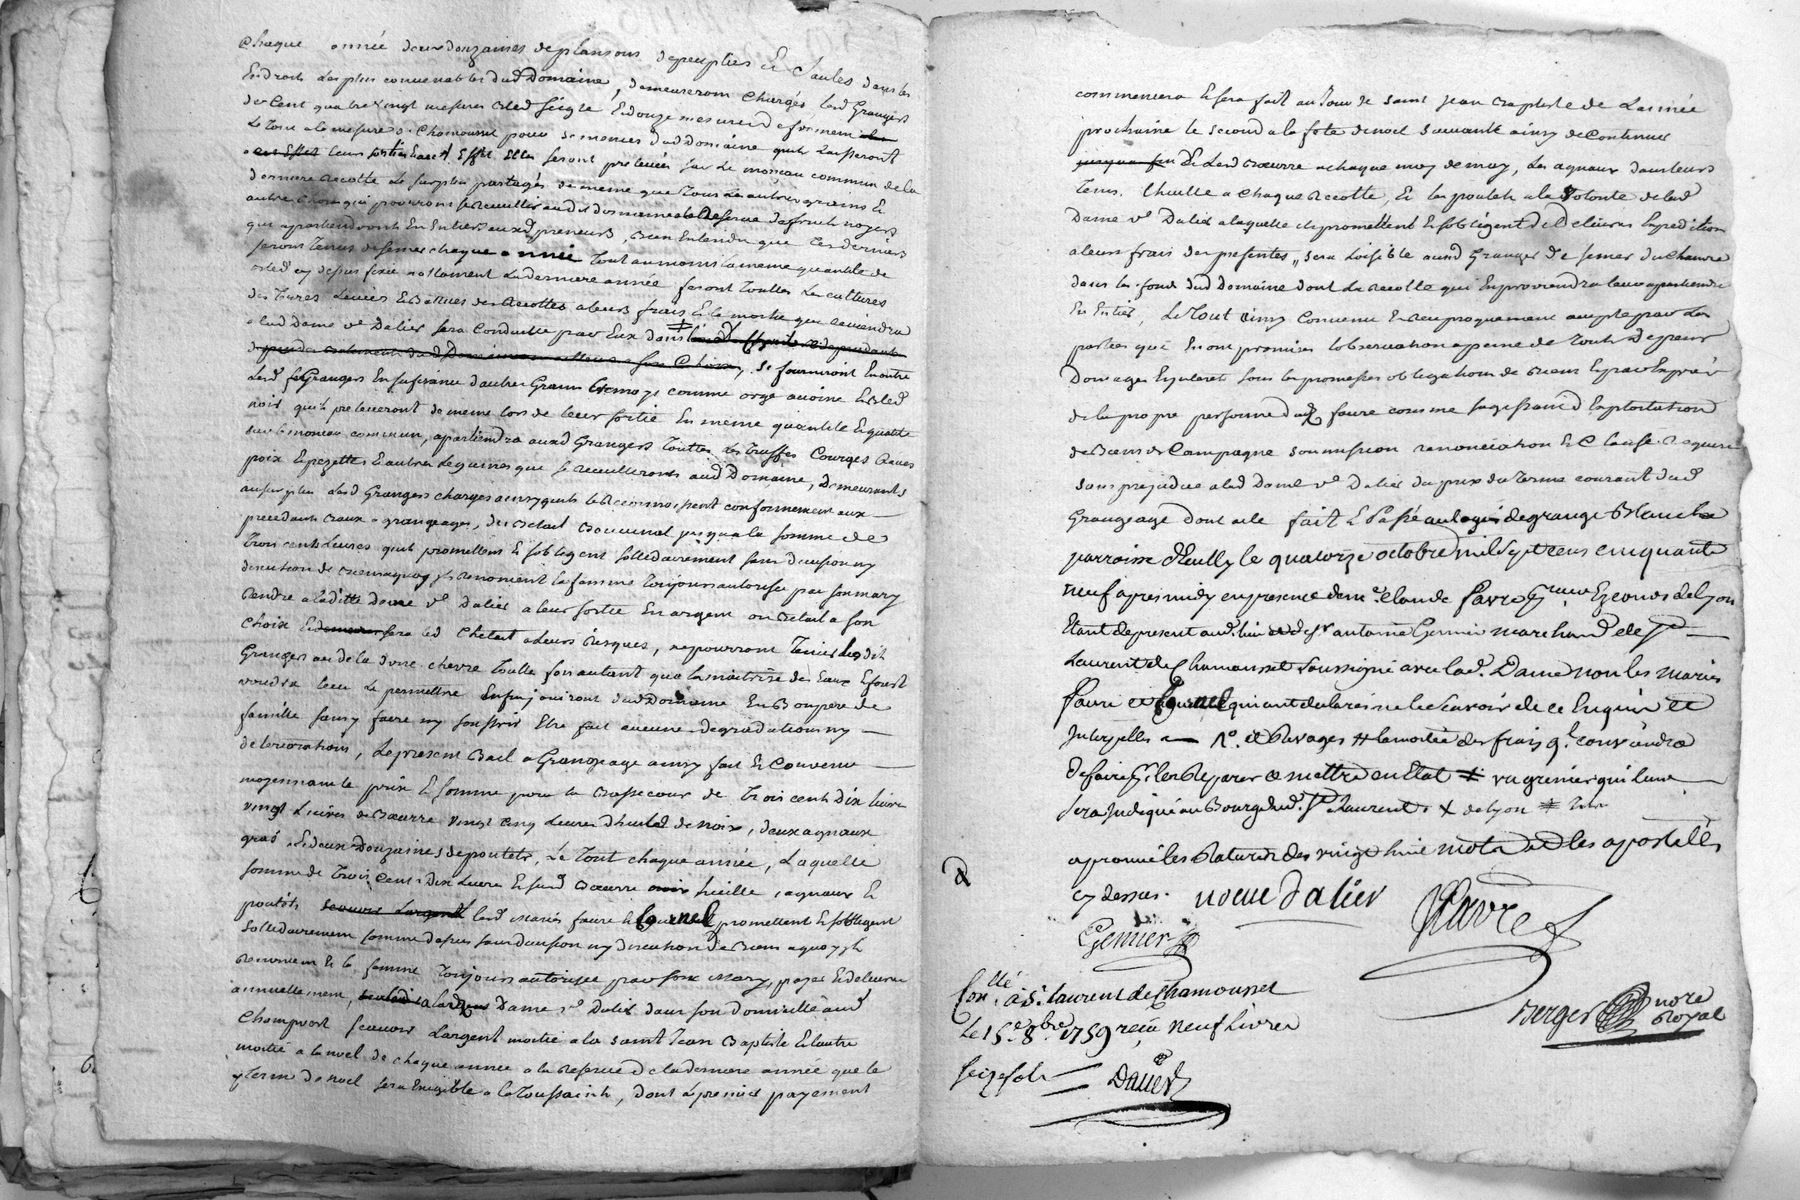 chaque année deux douzaines de plansons de peupliers Et Saules dans les
Endroits Les plus convenables dud Domaine, demeureront Chargés lesd Grangers
de Cent quatre vingt mesures bled seigle Et douze mesures de froment
Le Tout a la mesure de Chamousset pour semences dud domaine quils Laisseront
leur sortie Et Elles seront prelevées sur le monceau commun de la
derniere Recolte Le surplus partagés de meme que Tous Les autres grains Et
autres choses qui pourront se Recueillir aud domaine a la Reserve des fruits noyers
qui apartiendront En Entier auxd preneurs, Bien Entendu que Ces derniers
seront Tenus de semer chaque année Tout au moins la meme quantité de
bled cy dessus fixée notament La derniere année feront Toutes Les cultures
des Terres Levées Et Battues des Recoltes a leurs frais Et la moitié qui reviendra
a lad Dame ve Dalier sera Conduitte par Eux dans
se fourniront En outre
Lesd Grangers En semence d'autres Grains comme orge avoine Et Bled
noir quils preleveront de meme lors de leur sortie En meme quantité Et qualité
sur le monceau commun, apartiendra auxd Grangers Toutes Les Truffes Courges Raves
poix Et pezettes Et autres Legumes que se recuilleront aud Domaine, Demeurants
au surplus Lesd Grangers chargés ainsy quils le Reconnoissent conformement aux
precedants Baux a grangeages, du Betail Bouvinal jusqua la somme de
Trois cents Livres quils promettent Et sobligent sollidairement sans division ny
discution de Biens a quoy ils Renoncient la femme Toujours autorisée par son mary
Rendre a laditte Dame ve Dalier a leur sortie En argent ou Betail a son
Choix sera led Chetail a leurs risques, ne pourront Tenir lesdit
Grangers au dela d'une chevre Toutte fois autant que la maitrise des Eaux Et forest
voudra leur Le permettre Enfin jouiront dud Domaine En Bon pere de
famille sans y faire ny souffrir Etre fait aucunes degradations ny
deteriorations, Le present Bail a Grangeage ainsy fait Et Convenu
moyennant le prix Et somme pour la Bassecour de Trois cents Dix Livres
vingt Livres de Beurre vingt cinq Livres d'huile de noix, deux agneaux
gras Et deux Douzaines de poulets, Le Tout chaque année, Laquelle
somme de Trois Cents Dix Livres Et sur Beurre huille, agneaux Et
poulets lesd Mariés faure Et promettent Et sobligent
sollidairement comme dessus sans division ny discution de Biens a quoy ils
Renoncient Et la femme Toujours autorisée par son Mary, payer Et delivrer
annuellement, a lad Dame ve Dalier dans son domicille aud
Champvert scavoir L'argent moitié a la Saint Jean Baptiste Et L'autre
moitié a la noel de chaque année a la Reserve de la derniere année que le
Terme de noel sera Exigible a la Toussaint, Dont Le premier payement
commencera Et sera fait au Jour de Saint Jean Baptiste de Lannée
prochaine le second a la fete de noel suivante ainsy de Continuer
Et Led Beurre a chaque moy de may, Les agneaux dans leurs
Tems. L'huille a chaque Recolte, Et les poulets a la volonté de lad
Dame ve Dalier a laquelle ils promettent Et sobligent de delivrer Expedition
a leurs frais des presentes, sera Loisible auxd Grangers de semer du chanvre
dans les fonds dud Domaine dont La Recolte qui En proviendra leur apartiendra
En Entier, Le Tout ainsy Convenu Et Reciproquement accepté par Les
parties qui En ont promises Lobservation a peine de Touts Depens
Domages Et interets sous les promesses obligations de Biens Et par Exprés
de la propre personne dud faure comme sagissant d'Exploitation
de Biens de Campagne soumission renonciation Et Clause Requise
sans prejudice a lad Dame ve Dalier du prix du Terme courant dud
Grangeage dont acte fait Et Passé au logis de grange Blanche
parroisse d'Eully le quatorze octobre mil sept cens cinquante
neuf apres midy en presence de me Claude favre
Etant de present aud. lieu et de sr antoine Genier marchand de St
Laurent de Chamousset soussigné avec lad. Dame non les mariés
faure et qui ont declarés ne le scavoir de ce Enquis et
Interpellés
de faire pour les Reparer et mettre en Etat
sera Indiqué au Bourg dud. St Laurent x de lyon
aprouvé les Ratures de vingt huit mots et les apostilles
cy dessus. veuve Dalier
Favre
Genier
Conllé à St Laurent de Chamousset
Berger nore
Royal
Le 15e 8bre 1759 reçu neuf Livres
seize sols